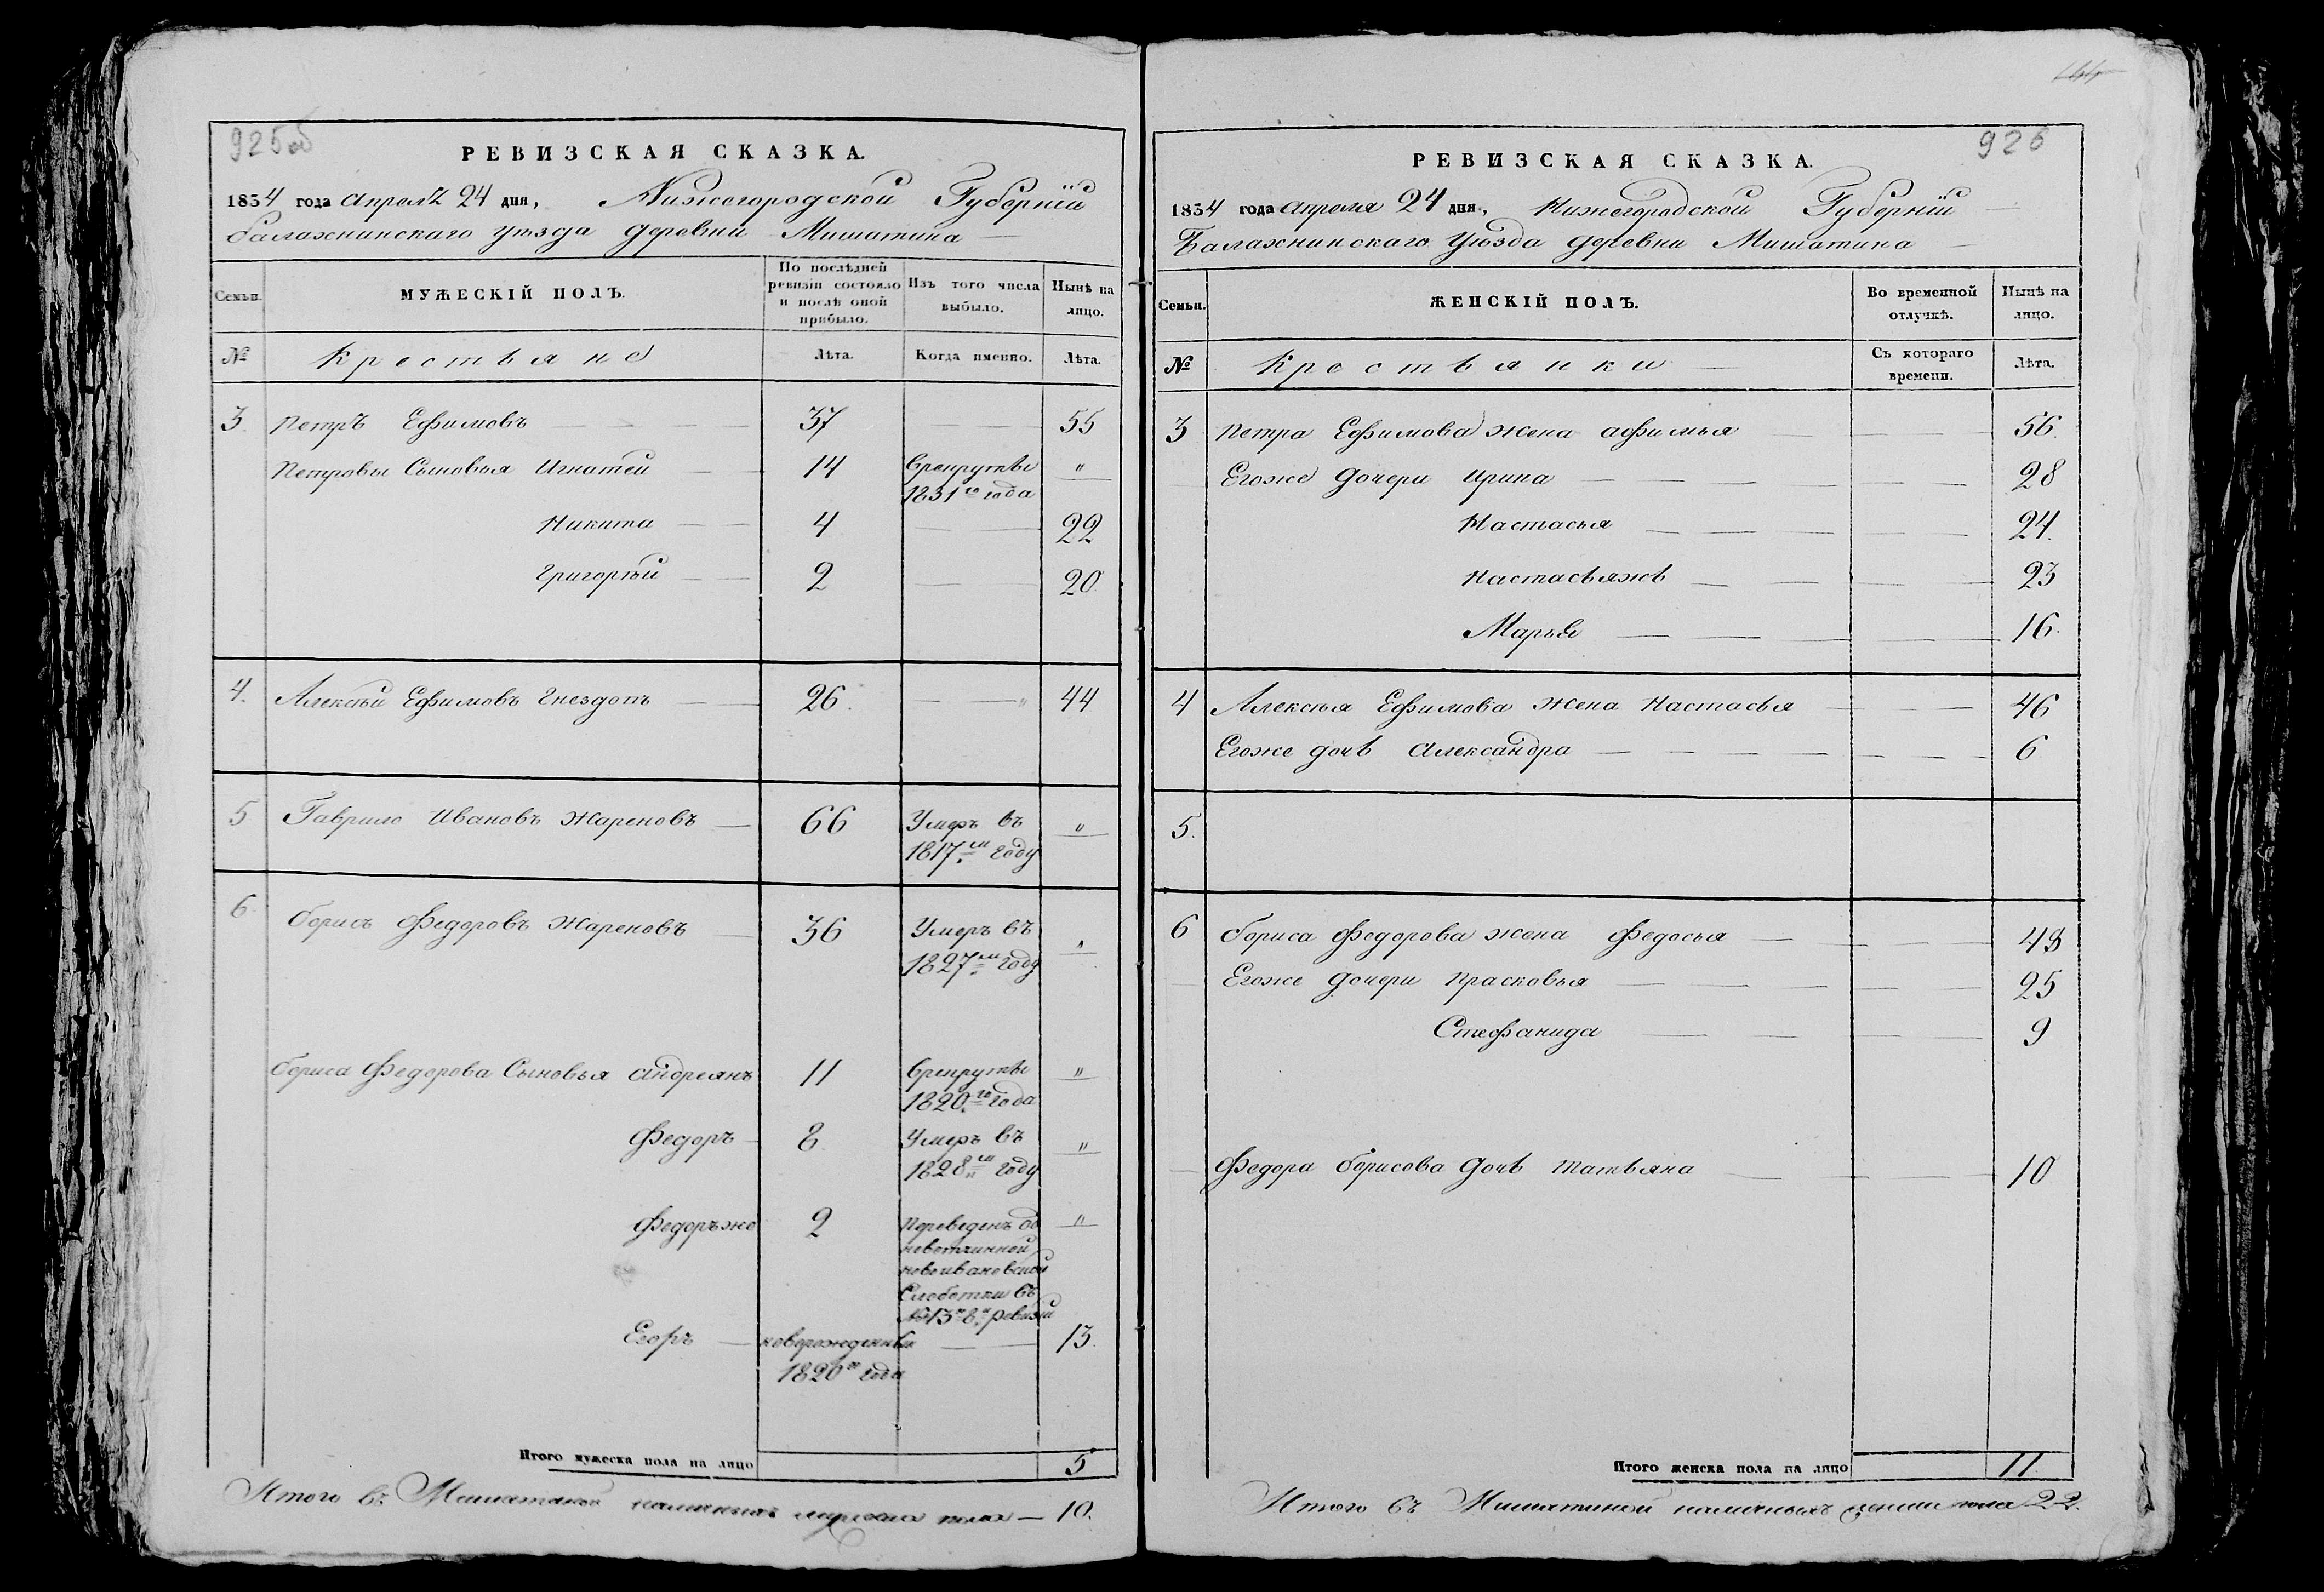 925об
РЕВИЗСКАЯ СКАЗКА.
1834 года Апреля 24 дня, Нижегородской Губернiи
Балахнинскаго уѣзда деревни Мишатина
Семьи.
МУЖЕСКIЙ ПОЛЪ.
По послѣдней ревизiи состояло и послѣ оной прибыло.
Изъ того числа выбыло.
Нынѣ на лицо.
№
Крестьяне
Лѣта.
Когда именно.
Лѣта.
3. Петръ Ефимовъ 37 55
Петровы Сыновья Игнатей 14 Врекруты 1831го года "
Никита 4 22
Григорѣй 2 20
4. Алексѣй Ефимовъ Гнездотъ 26. " 44
5 Гаврило Ивановъ Жареновъ 66 Умеръ въ 1817м году "
6 Борисъ Федоровъ Жареновъ 36 Умеръ въ 1827м году "
Бориса Федорова Сыновья Андреянъ 11 Врекруты 1820го года "
Федоръ 8 Умеръ въ 1828м году "
Федоръже 2 Переведенъ
Слоботки въ
№13й 8й ревизiи "
Егоръ новорожденны 1820го года 13.
Итого мужеска пола на лицо 5
Итого въ Мишатиной наличныхъ мужеска пола — 10.
926
РЕВИЗСКАЯ СКАЗКА.
1834 года Апреля 24 дня, Нижегородской Губернiи
Балахнинскаго Уѣзда деревни Мишатина
Семьи.
ЖЕНСКIЙ ПОЛЪ.
Во временной отлучкѣ.
Нынѣ на лицо.
№
Крестьянки
Съ котораго времени.
Лѣта.
3 Петра Ефимова Жена Афимья 56.
Егоже Дочери Ирина 28
Настасья 24.
Настасьяжъ 23
Марья 16.
4 Алексѣя Ефимова Жена Настасья 46
Егоже дочь Александра 6
5.
6 Бориса Федорова жена Федосья 48
Егоже Дочери Прасковья 25
Стефанида 9
Федора Борисова Дочь Татьяна 10
Итого женска пола на лицо 11.
Итого въ Мишатиной наличныхъ женска пола 22.